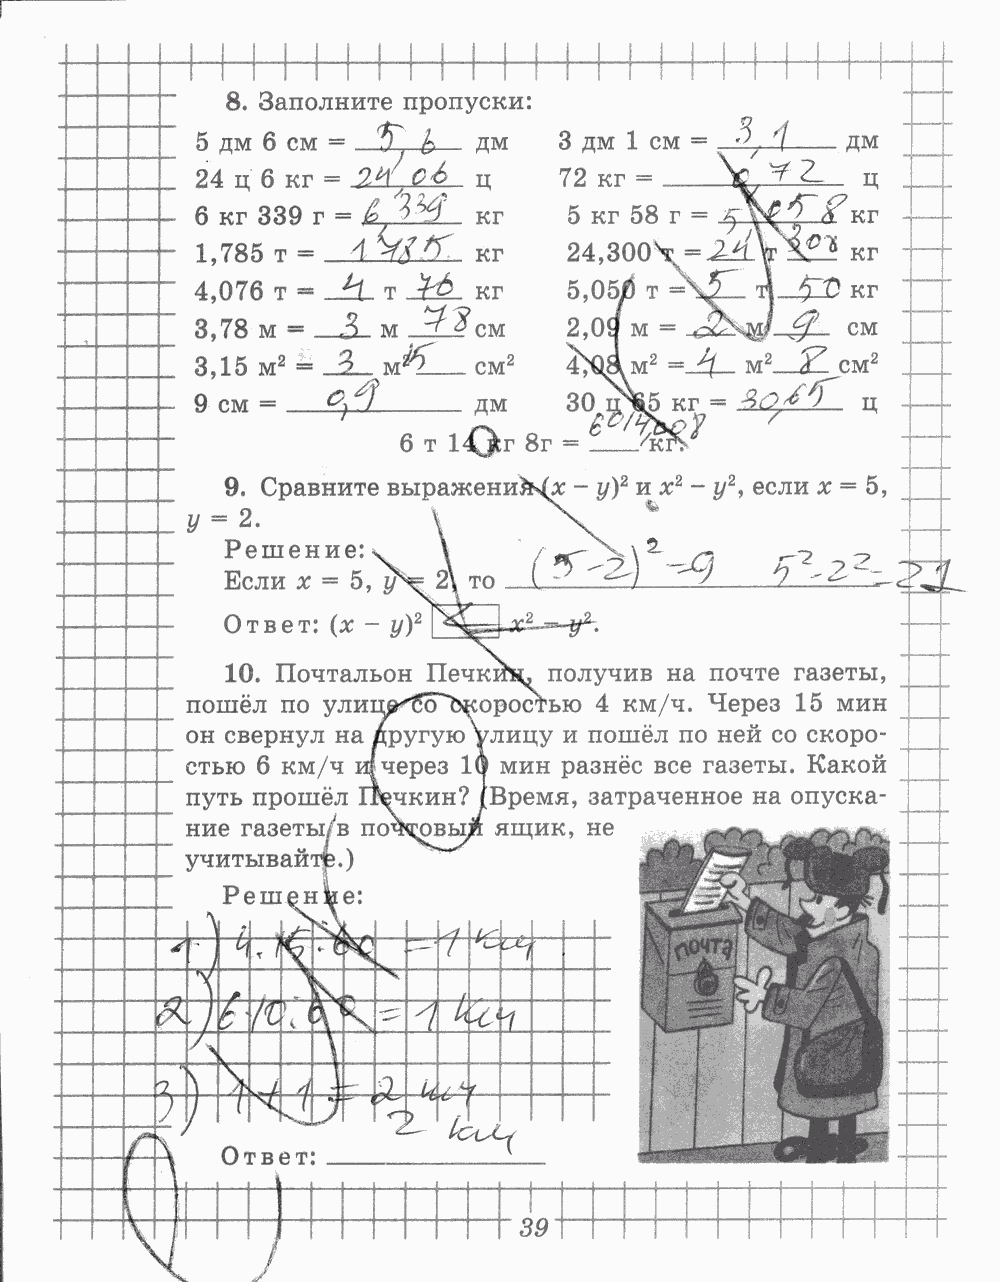 8. Заполните пропуски:
5 дм 6 см = 5,6 дм
3 дм 1 см = 3,1 дм
24 ц 6 кг = 24,06 ц
72 кг = 0,72 ц
6 кг 339 г = 6,339 кг
5 кг 58 г = 5,058 кг
1,785 т = 1785 кг
24,300 т = 24 т 300 кг
4,076 т = 4 т 76 кг
5,050 т = 5 т 50 кг
3,78 м = 3 м 78 см
2,09 м = 2 м 9 см
3,15 м² = 3 м² 15 см²
4,08 м² = 4 м² 8 см²
9 см = 0,9 дм
30 ц 65 кг = 30,65 ц
6 т 14 кг 8г = 6014,008 кг.
9. Сравните выражения (x − y)² и x² − y², если x = 5,
y = 2.
Решение:
Если x = 5, y = 2, то (5-2)²=9 5²-2²=21
Ответ: (x − y)² < x² − y².
10. Почтальон Печкин, получив на почте газеты,
пошёл по улице со скоростью 4 км/ч. Через 15 мин
он свернул на другую улицу и пошёл по ней со скоро-
стью 6 км/ч и через 10 мин разнёс все газеты. Какой
путь прошёл Печкин? (Время, затраченное на опуска-
ние газеты в почтовый ящик, не
учитывайте.)
Решение:
1) 4·15:60 = 1 км
2) 6·10:60 = 1 км
3) 1+1=2 км
2 км
Ответ:
ПОЧТА
39